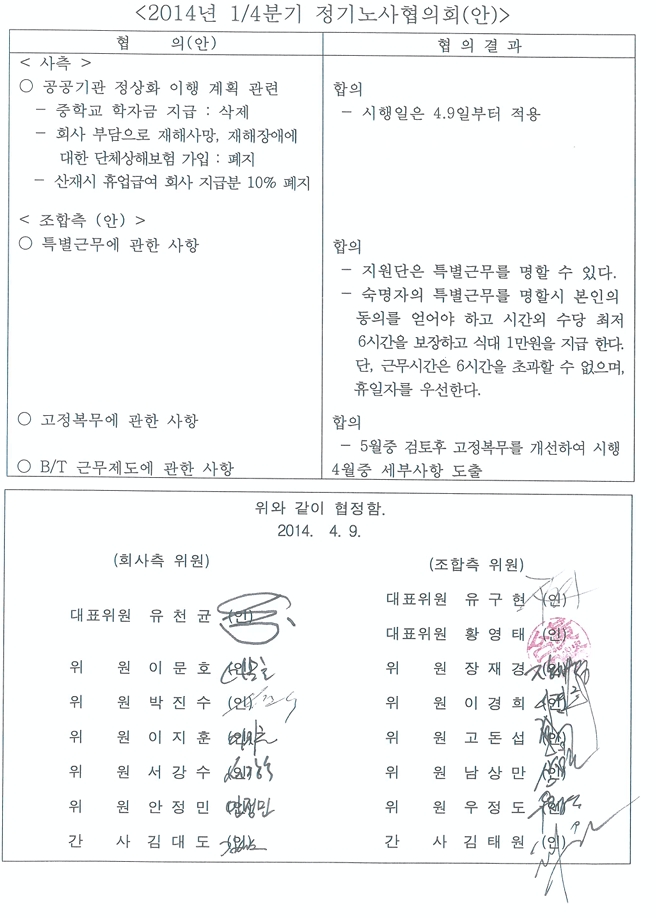 <2014년 1/4분기 정기노사협의회(안)>
협 의(안)
협 의 결 과
< 사측 >
○ 공공기관 정상화 이행 계획 관련
- 중학교 학자금 지급 : 삭제
- 회사 부담으로 재해사망, 재해장애에
대한 단체상해보험 가입 : 폐지
- 산재시 휴업급여 회사 지급분 10% 폐지
합의
- 시행일은 4.9일부터 적용
< 조합측 (안) >
○ 특별근무에 관한 사항
합의
- 지원단은 특별근무를 명할 수 있다.
- 숙명자의 특별근무를 명할시 본인의
동의를 얻어야 하고 시간외 수당 최저
6시간을 보장하고 식대 1만원을 지급 한다.
단, 근무시간은 6시간을 초과할 수 없으며,
휴일자를 우선한다.
○ 고정복무에 관한 사항
합의
- 5월중 검토후 고정복무를 개선하여 시행
○ B/T 근무제도에 관한 사항
4월중 세부사항 도출
위와 같이 협정함.
2014. 4. 9.
(회사측 위원)
대표위원 유 천 균 (인)
위 원 이 문 호 (인)
위 원 박 진 수 (인)
위 원 이 지 훈 (인)
위 원 서 강 수 (인)
위 원 안 정 민 안정민
간 사 김 대 도 (인)
(조합측 위원)
대표위원 유 구 현 (인)
대표위원 황 영 태 (인)
위 원 장 재 경 (인)
위 원 이 경 희 (인)
위 원 고 돈 섭 (인)
위 원 남 상 만 (인)
위 원 우 정 도 (인)
간 사 김 태 원 (인)